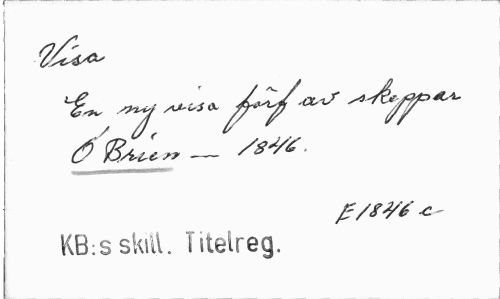 Visa
En ny visa förf av skeppar
O'Brien — 1846.
E 1846 c
KB:s skill. Titelreg.